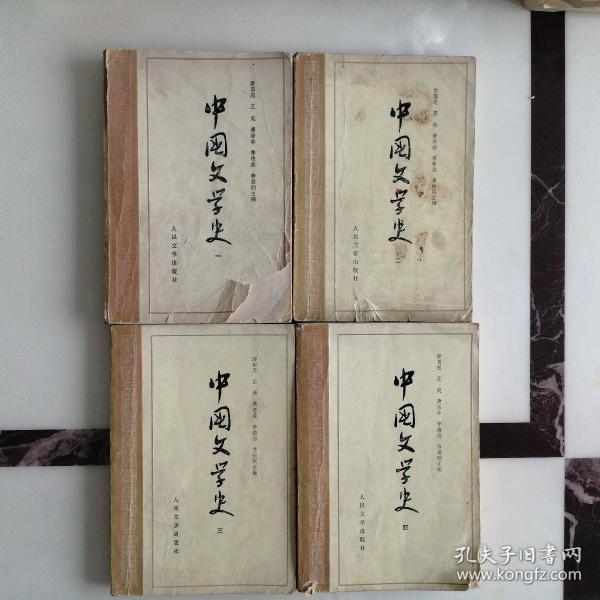 游国恩 王起 萧涤非 季镇淮 费振刚主编
中国文学史
一
人民文学出版社
游国恩 王起 萧涤非 季镇淮 费振刚主编
中国文学史
二
人民文学出版社
游国恩 王起 萧涤非 季镇淮 费振刚主编
中国文学史
三
人民文学出版社
游国恩 王起 萧涤非 季镇淮 费振刚主编
中国文学史
四
人民文学出版社
孔夫子旧书网
www.kongfz.com